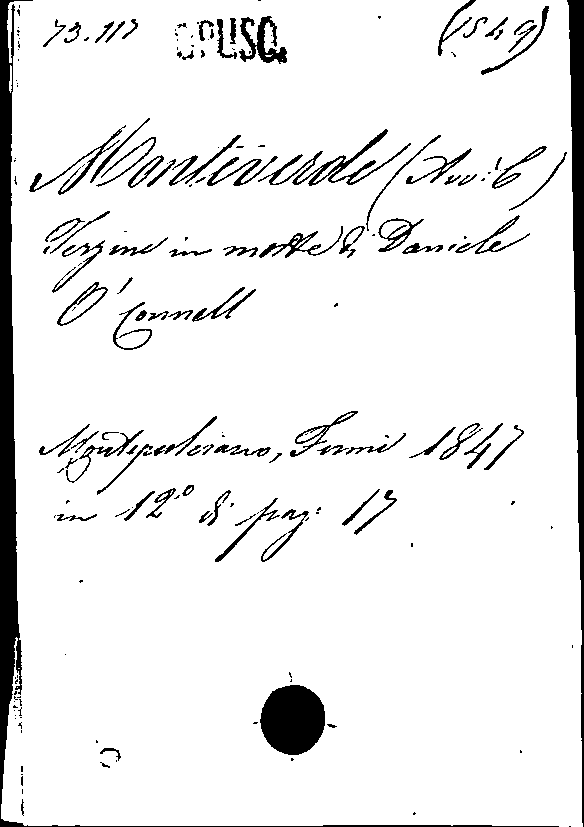 73.117 OPUSC. (1549)
Monteverde (Avv: C)
Terzine in morte di Daniele
O'Connell
Montepulciano, Fumi 1847
in 12.o di pag: 17